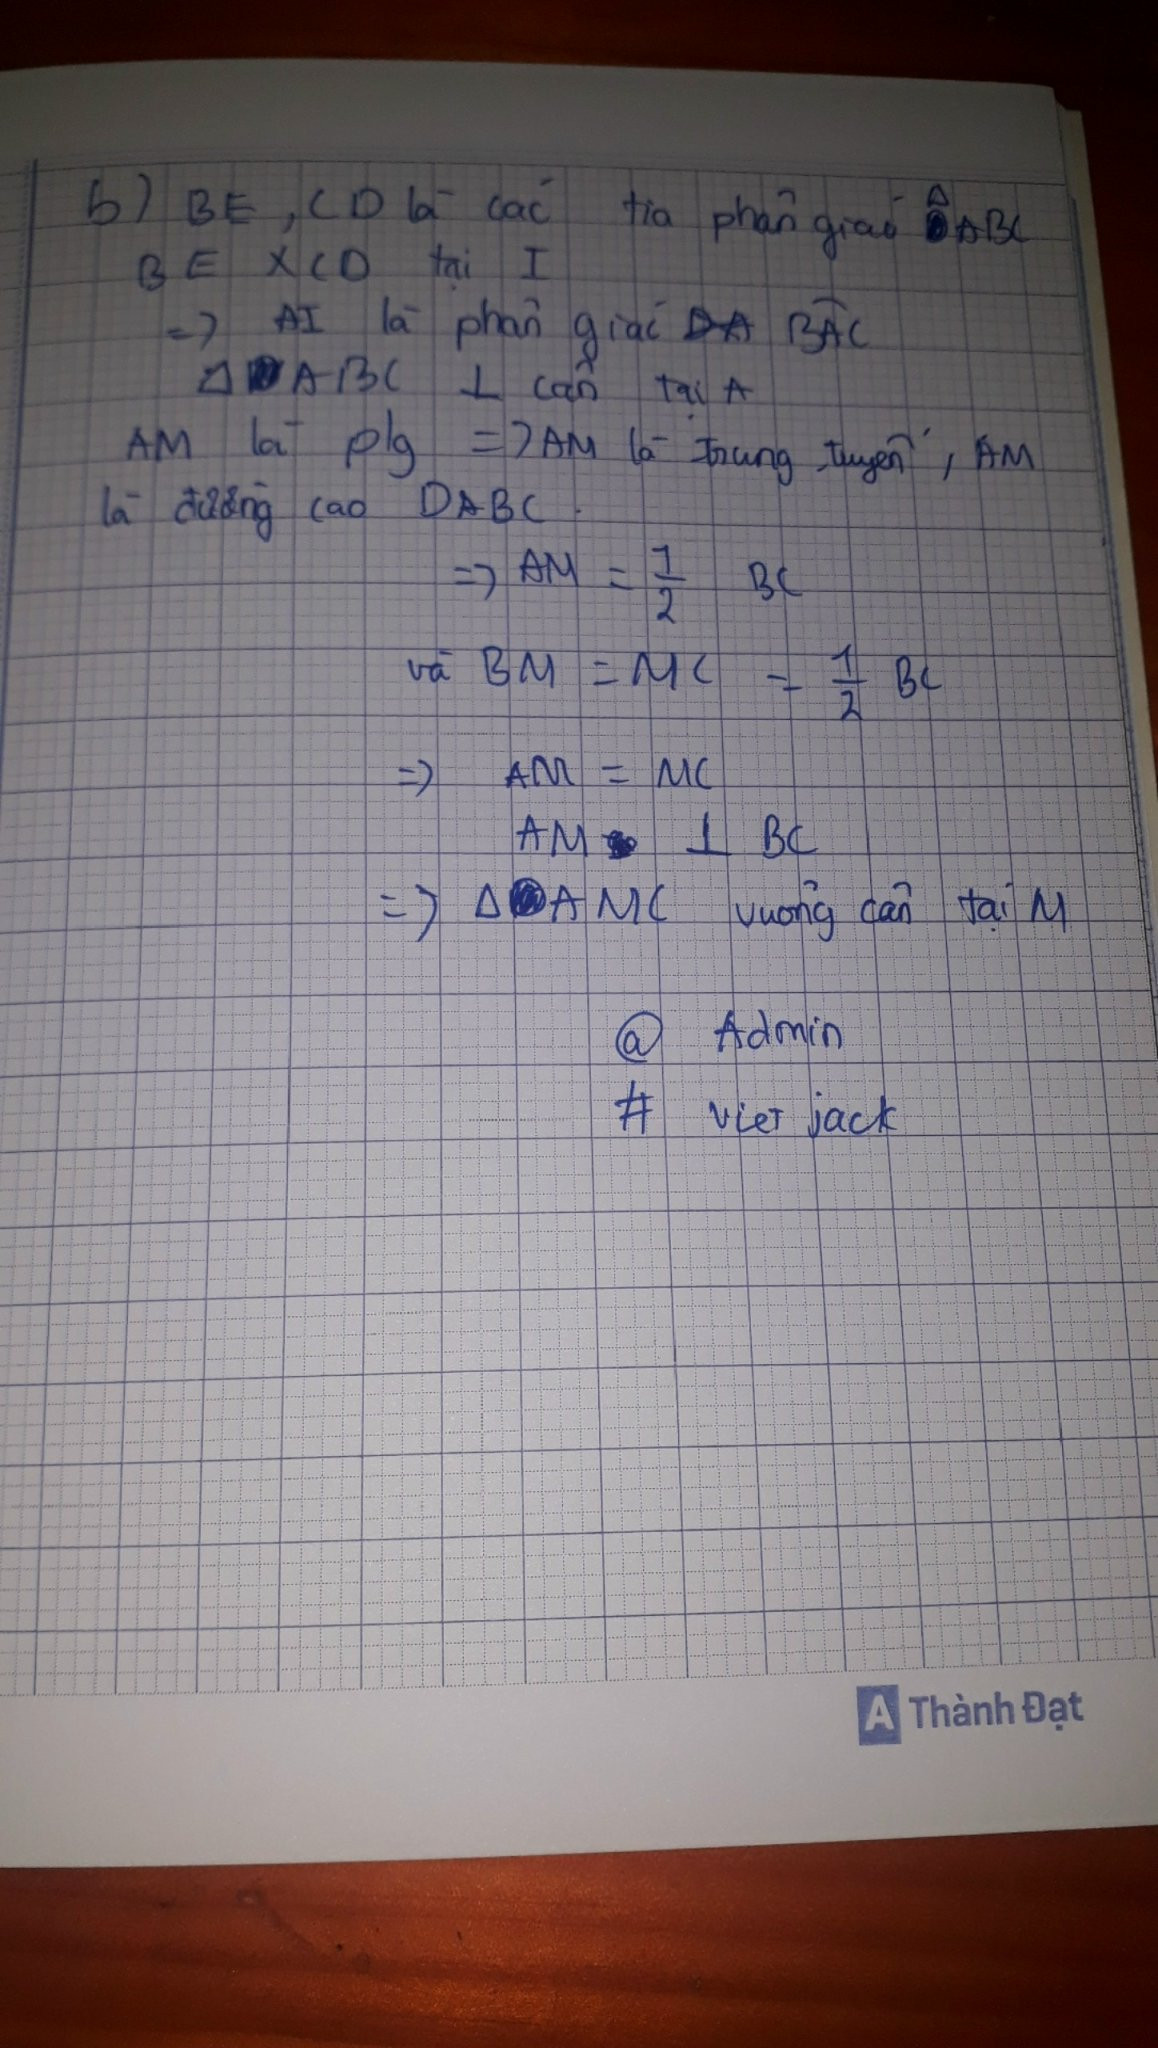 b) BE, CD là các tia phân giác ΔABC
BE X CD tại I
=> AI là phân giác BAC
Δ ABC ⊥ cân tại A
AM là p/g => AM là trung tuyến, AM
là đường cao DABC.
=> AM = 1/2 BC
và BM = MC = 1/2 BC
=> AM = MC
AM ⊥ BC
=> Δ AMC vuông cân tại M
@ Admin
# viet jack
A Thành Đạt